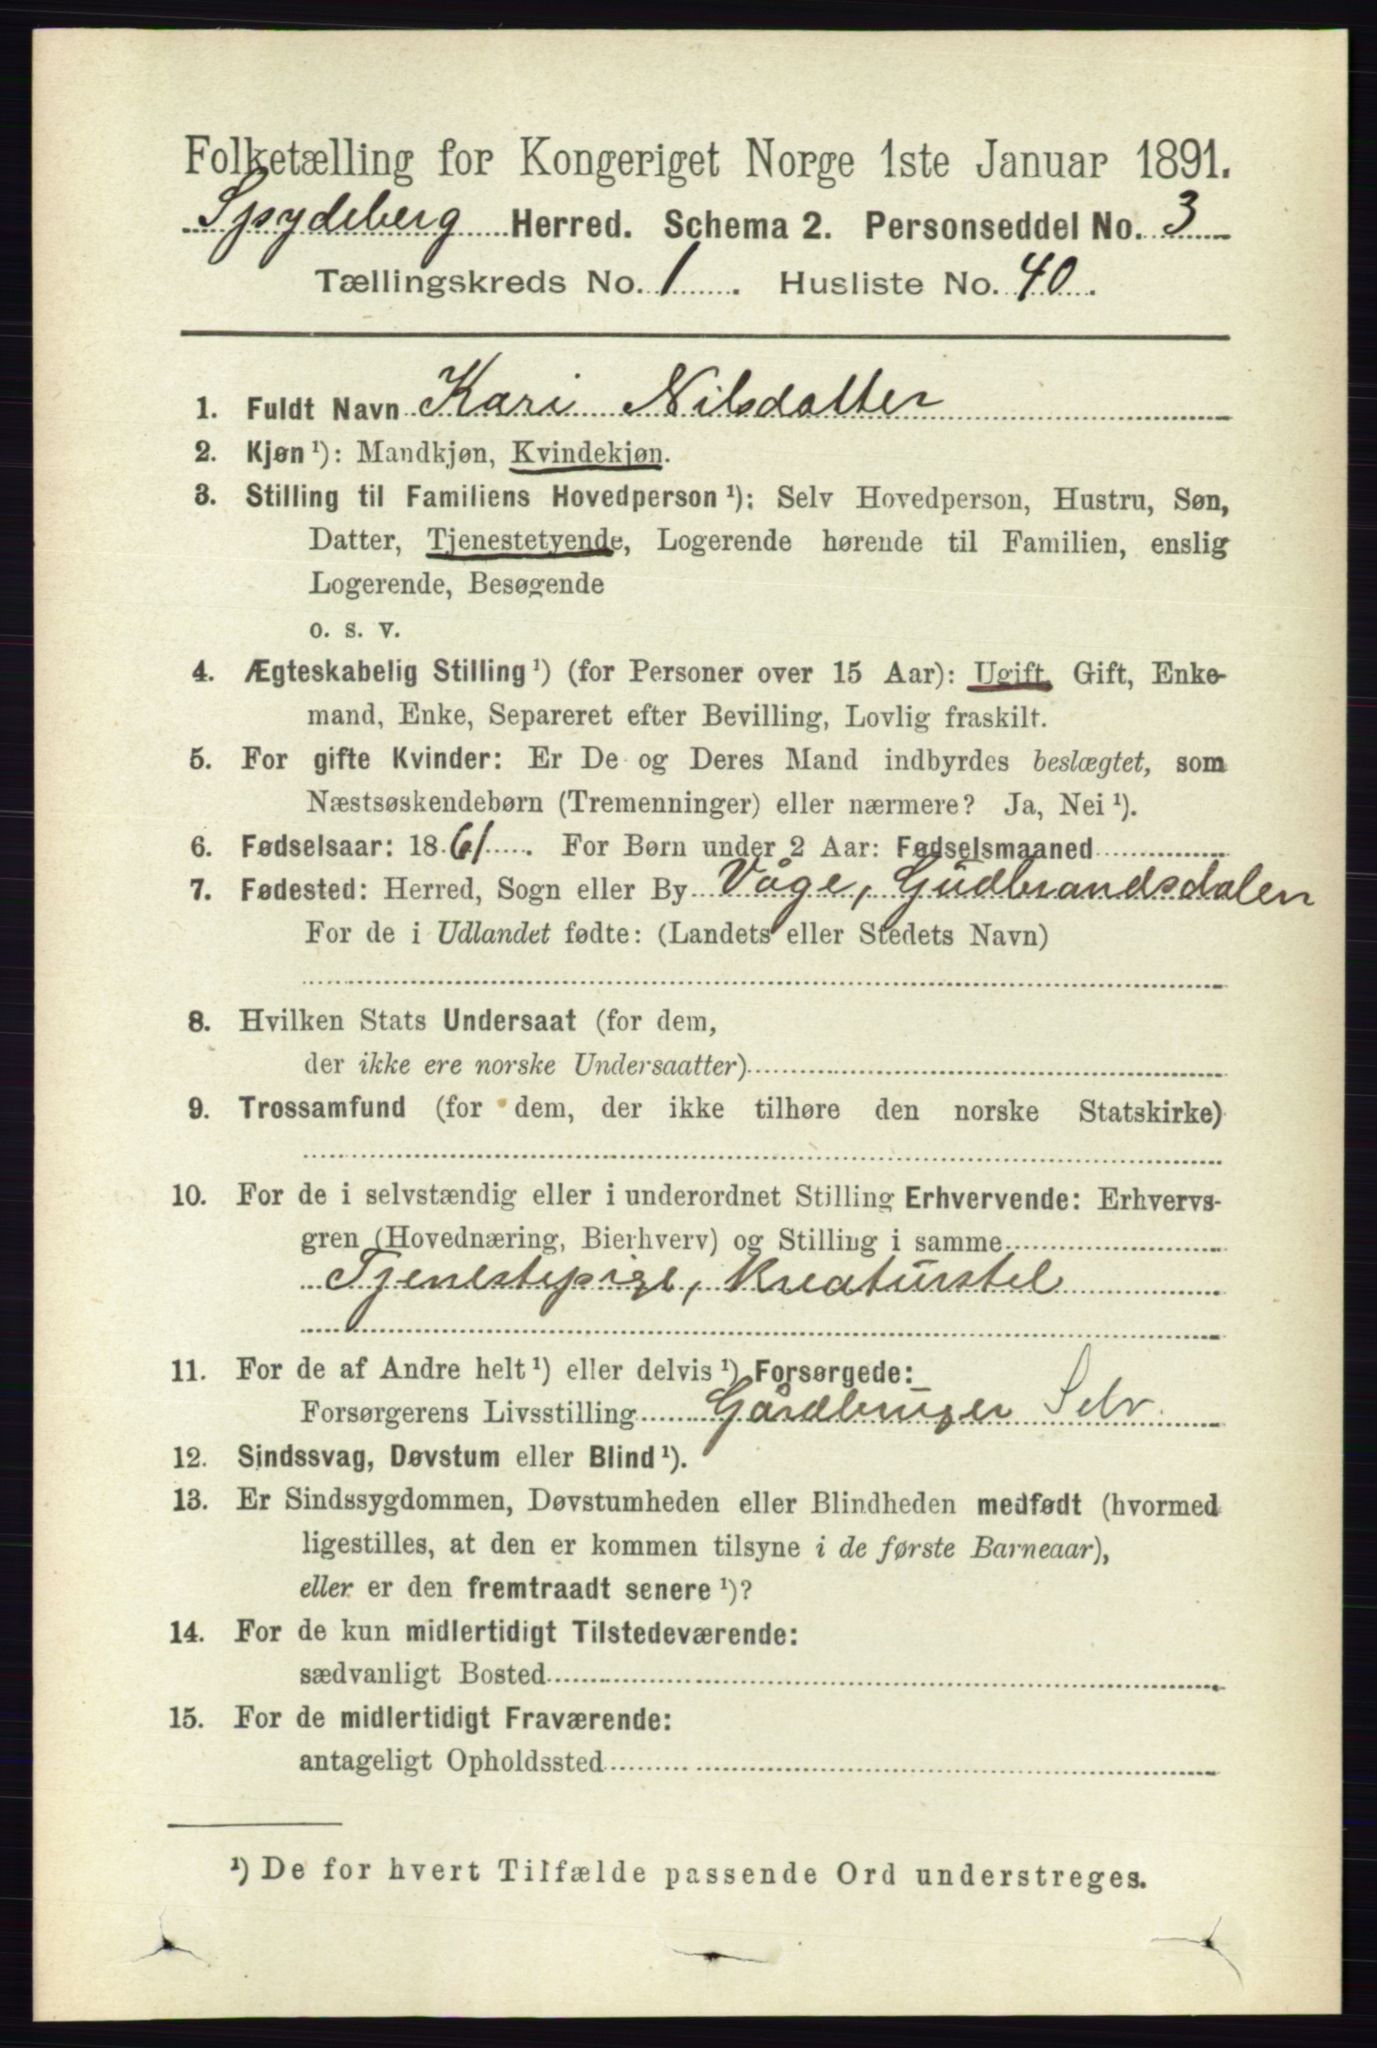 Folketælling for Kongeriget Norge 1ste Januar 1891.
Spydeberg Herred. Schema 2. Personseddel No. 3
Tællingskreds No. 1. Husliste No. 40.
1. Fuldt Navn Kari Nilsdatter
2. Kjøn ¹): Mandkjøn, Kvindekjøn.
3. Stilling til Familiens Hovedperson ¹): Selv Hovedperson, Hustru, Søn,
Datter, Tjenestetyende, Logerende hørende til Familien, enslig
Logerende, Besøgende
o. s. v.
4. Ægteskabelig Stilling ¹) (for Personer over 15 Aar): Ugift, Gift, Enke-
mand, Enke, Separeret efter Bevilling, Lovlig fraskilt.
5. For gifte Kvinder: Er De og Deres Mand indbyrdes beslægtet, som
Næstsøskendebørn (Tremenninger) eller nærmere? Ja, Nei ¹).
6. Fødselsaar: 1861. For Børn under 2 Aar: Fødselsmaaned
7. Fødested: Herred, Sogn eller By Våge, Gudbrandsdalen
For de i Udlandet fødte: (Landets eller Stedets Navn)
8. Hvilken Stats Undersaat (for dem,
der ikke ere norske Undersaatter)
9. Trossamfund (for dem, der ikke tilhøre den norske Statskirke)
10. For de i selvstændig eller i underordnet Stilling Erhvervende: Erhvervs-
gren (Hovednæring, Bierhverv) og Stilling i samme
Tjenestepige, Kreaturstel
11. For de af Andre helt ¹) eller delvis ¹) Forsørgede:
Forsørgerens Livsstilling Gårdbruger Selv
12. Sindssvag, Døvstum eller Blind ¹).
13. Er Sindssygdommen, Døvstumheden eller Blindheden medfødt (hvormed
ligestilles, at den er kommen tilsyne i de første Barneaar),
eller er den fremtraadt senere ¹)?
14. For de kun midlertidigt Tilstedeværende:
sædvanligt Bosted
15. For de midlertidigt Fraværende:
antageligt Opholdssted
¹) De for hvert Tilfælde passende Ord understreges.